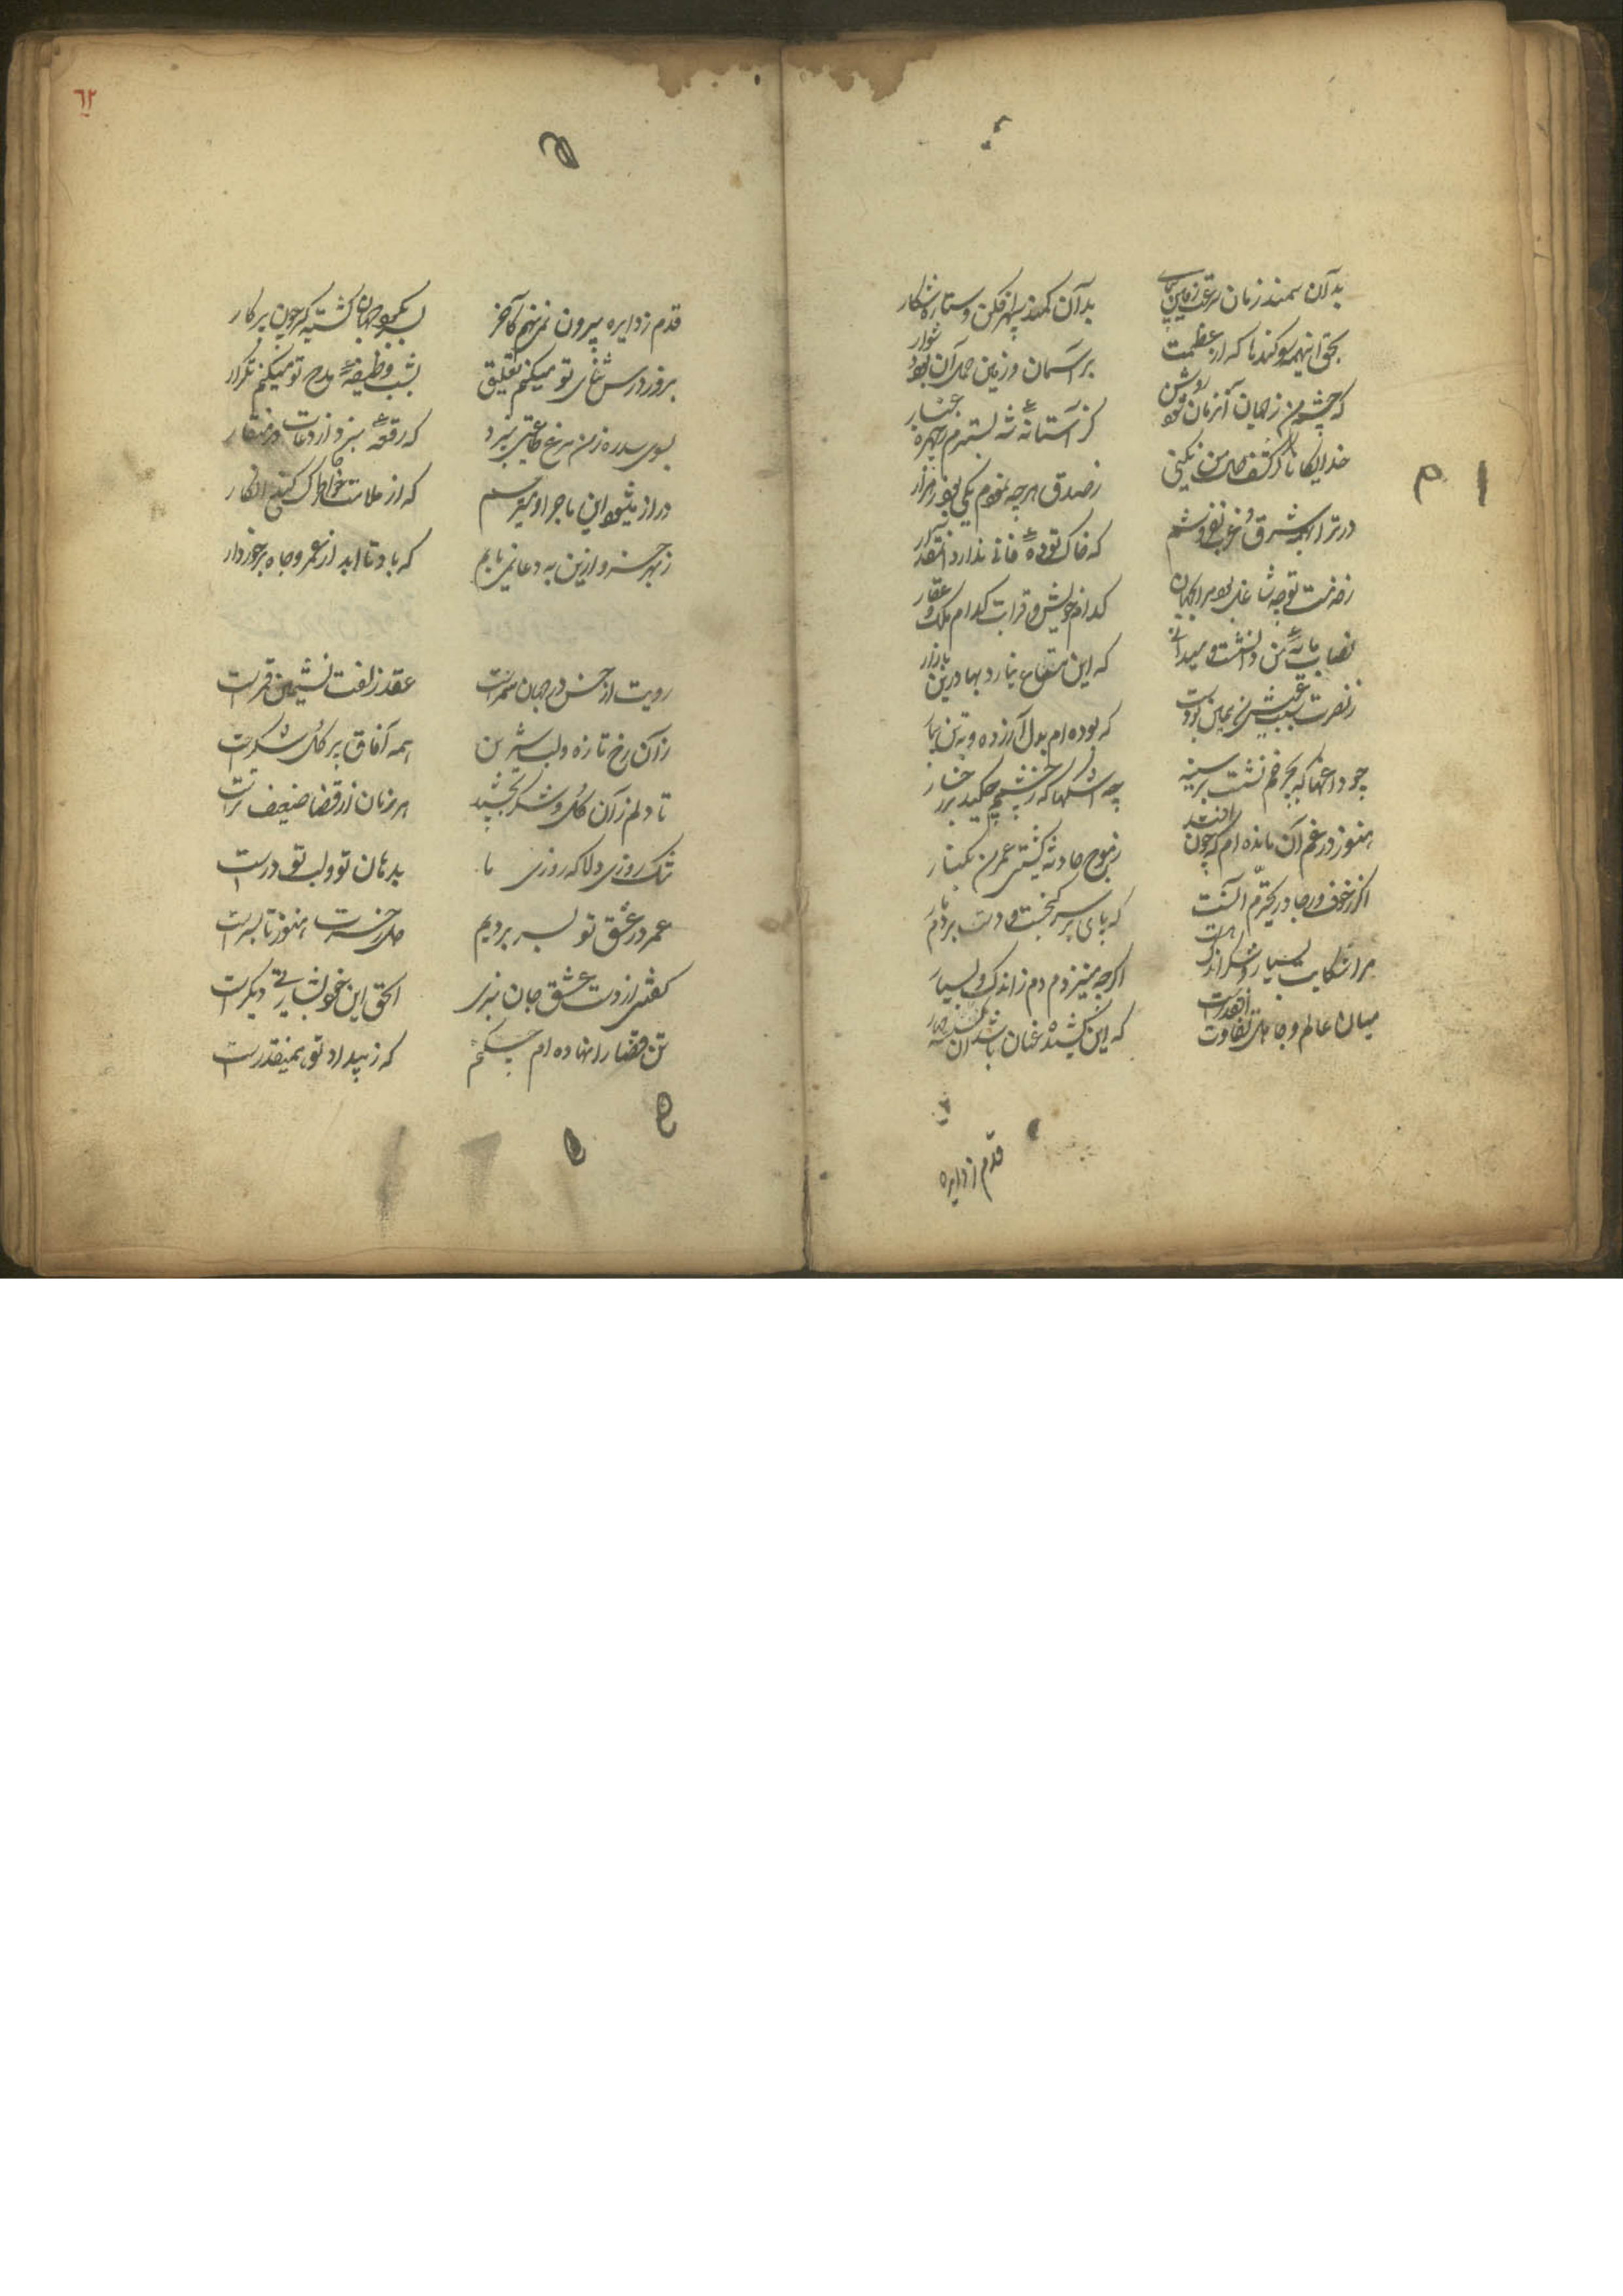 بدآن سمند زمان سرعت زمین پیمای
بدآن کمند سپهر افکن و ستاره شکار
بحق اینهمه سوکندها که از عظمت
بر آسمان و زمین حمل آن بود دشوار
که چشم من ز جهان آنزمان شود روشن
کز آستانه شه بسترم بچهره غبار
خدایکانا کر کشف حال من نکنی
ز صدق هرچه نمودم یکی بود ز هزار
در ترا بهمه شرق و غرب نفروشم
که خاک توده فانی ندارد آنمقدار
کدام خویش و قرابت کدام ملک و عقار
نصاب مایه من دانشست و میدانی
که این متاع نیارد بها درین بازار
که بوده ام بدل آزرده و بتن بیمار
چو داغها که بچرخم نشست بر سینه
چه اشکها که ز چشمم چکید بر رخسار
هنوز در غم آن مانده ام که چون افتد
ز موج حادثه کشتی عمر من بکنار
اکر ز خوف و رجا در تحیرم آنست
که پای بر سر کنجست و دست بر دم مار
مرا شکایت بسیار و شکر اندک هست
اکرچه می نزدم دم ز اندک و بسیار
میان عالم و جاهل تفاوت اینقدرست
که این کشیده عنان باشد آن کسسته مهار
قدم ز دایره
٦٢
قدم ز دایره بیرون نمی نهم کآخر
بسر بکرد جهان کشته کیر چون پرکار
بروز درس ثنای تو میکنم تعلیق
بشب وظیفه مدح تو میکنم تکرار
بسوی سدره ز من مرغ طاعتی نپرد
که رقعه نبرد از دعات در منقار
دراز میشود این ماجرا و میترسم
که از ملامت خاطر کنی انکار
ز بهر خسرو ازین به دعا نمی یابم
که باد تا ابد از عمر و جاه برخوردار
رویت از حسن در جهان سمرست
عقد زلفت نشیمن قمرست
زآن رخ تازه و لب شیرین
همه آفاق پر کل و شکرست
تا دلم زآن کل و شکر بچشید
هر زمان از قضا ضعیف ترست
تنک روزی دلا که روزی ما
بدهان تو و لب تو درست
عمر در عشق تو بسر بردیم
هنوز تا بسرست
کفتی از دست عشق جان نبری
الحق این خود بشارتی دکرست
تن قضا را نهاده ام چکنم
که ز بیداد تو همینقدرست